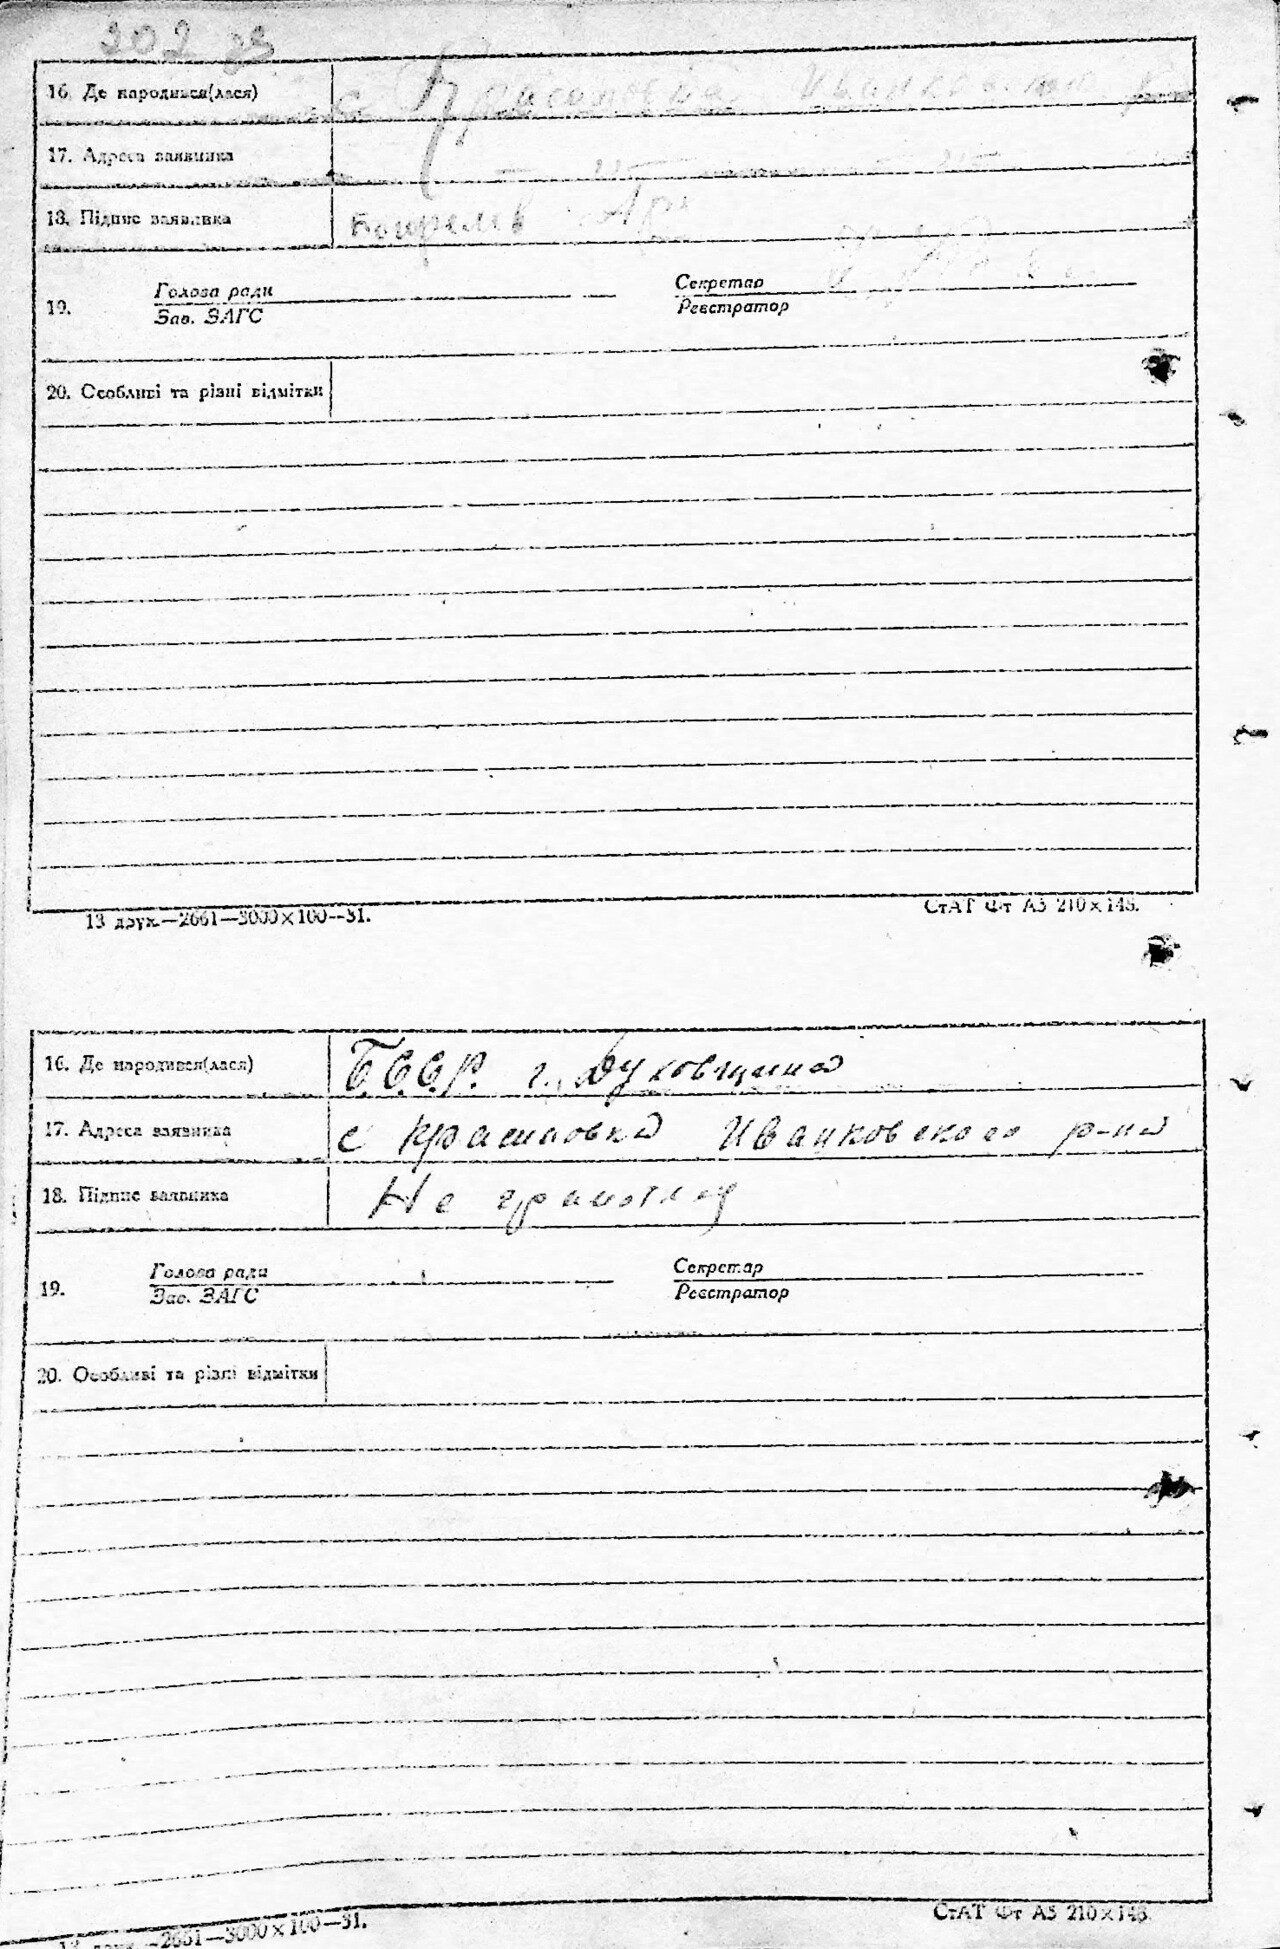 202 зв
16. Де народився(лася) с Красиловка Иванковского р-на
17. Адреса заявника
18. Підпис заявника
19. Голова ради Секретар
Зав. ЗАГС Реєстратор
20. Особливі та різні відмітки
13 друк.—2661—3000×100—31. СтАТ Фт А5 210×148.
16. Де народився(лася) Б.С.С.Р. г. Духовщина
17. Адреса заявника с Красиловка Иванковского р-на
18. Підпис заявника Не грамотная
19. Голова ради Секретар
Зав. ЗАГС Реєстратор
20. Особливі та різні відмітки
13 друк.—2661—3000×100—31. СтАТ Фт А5 210×148.